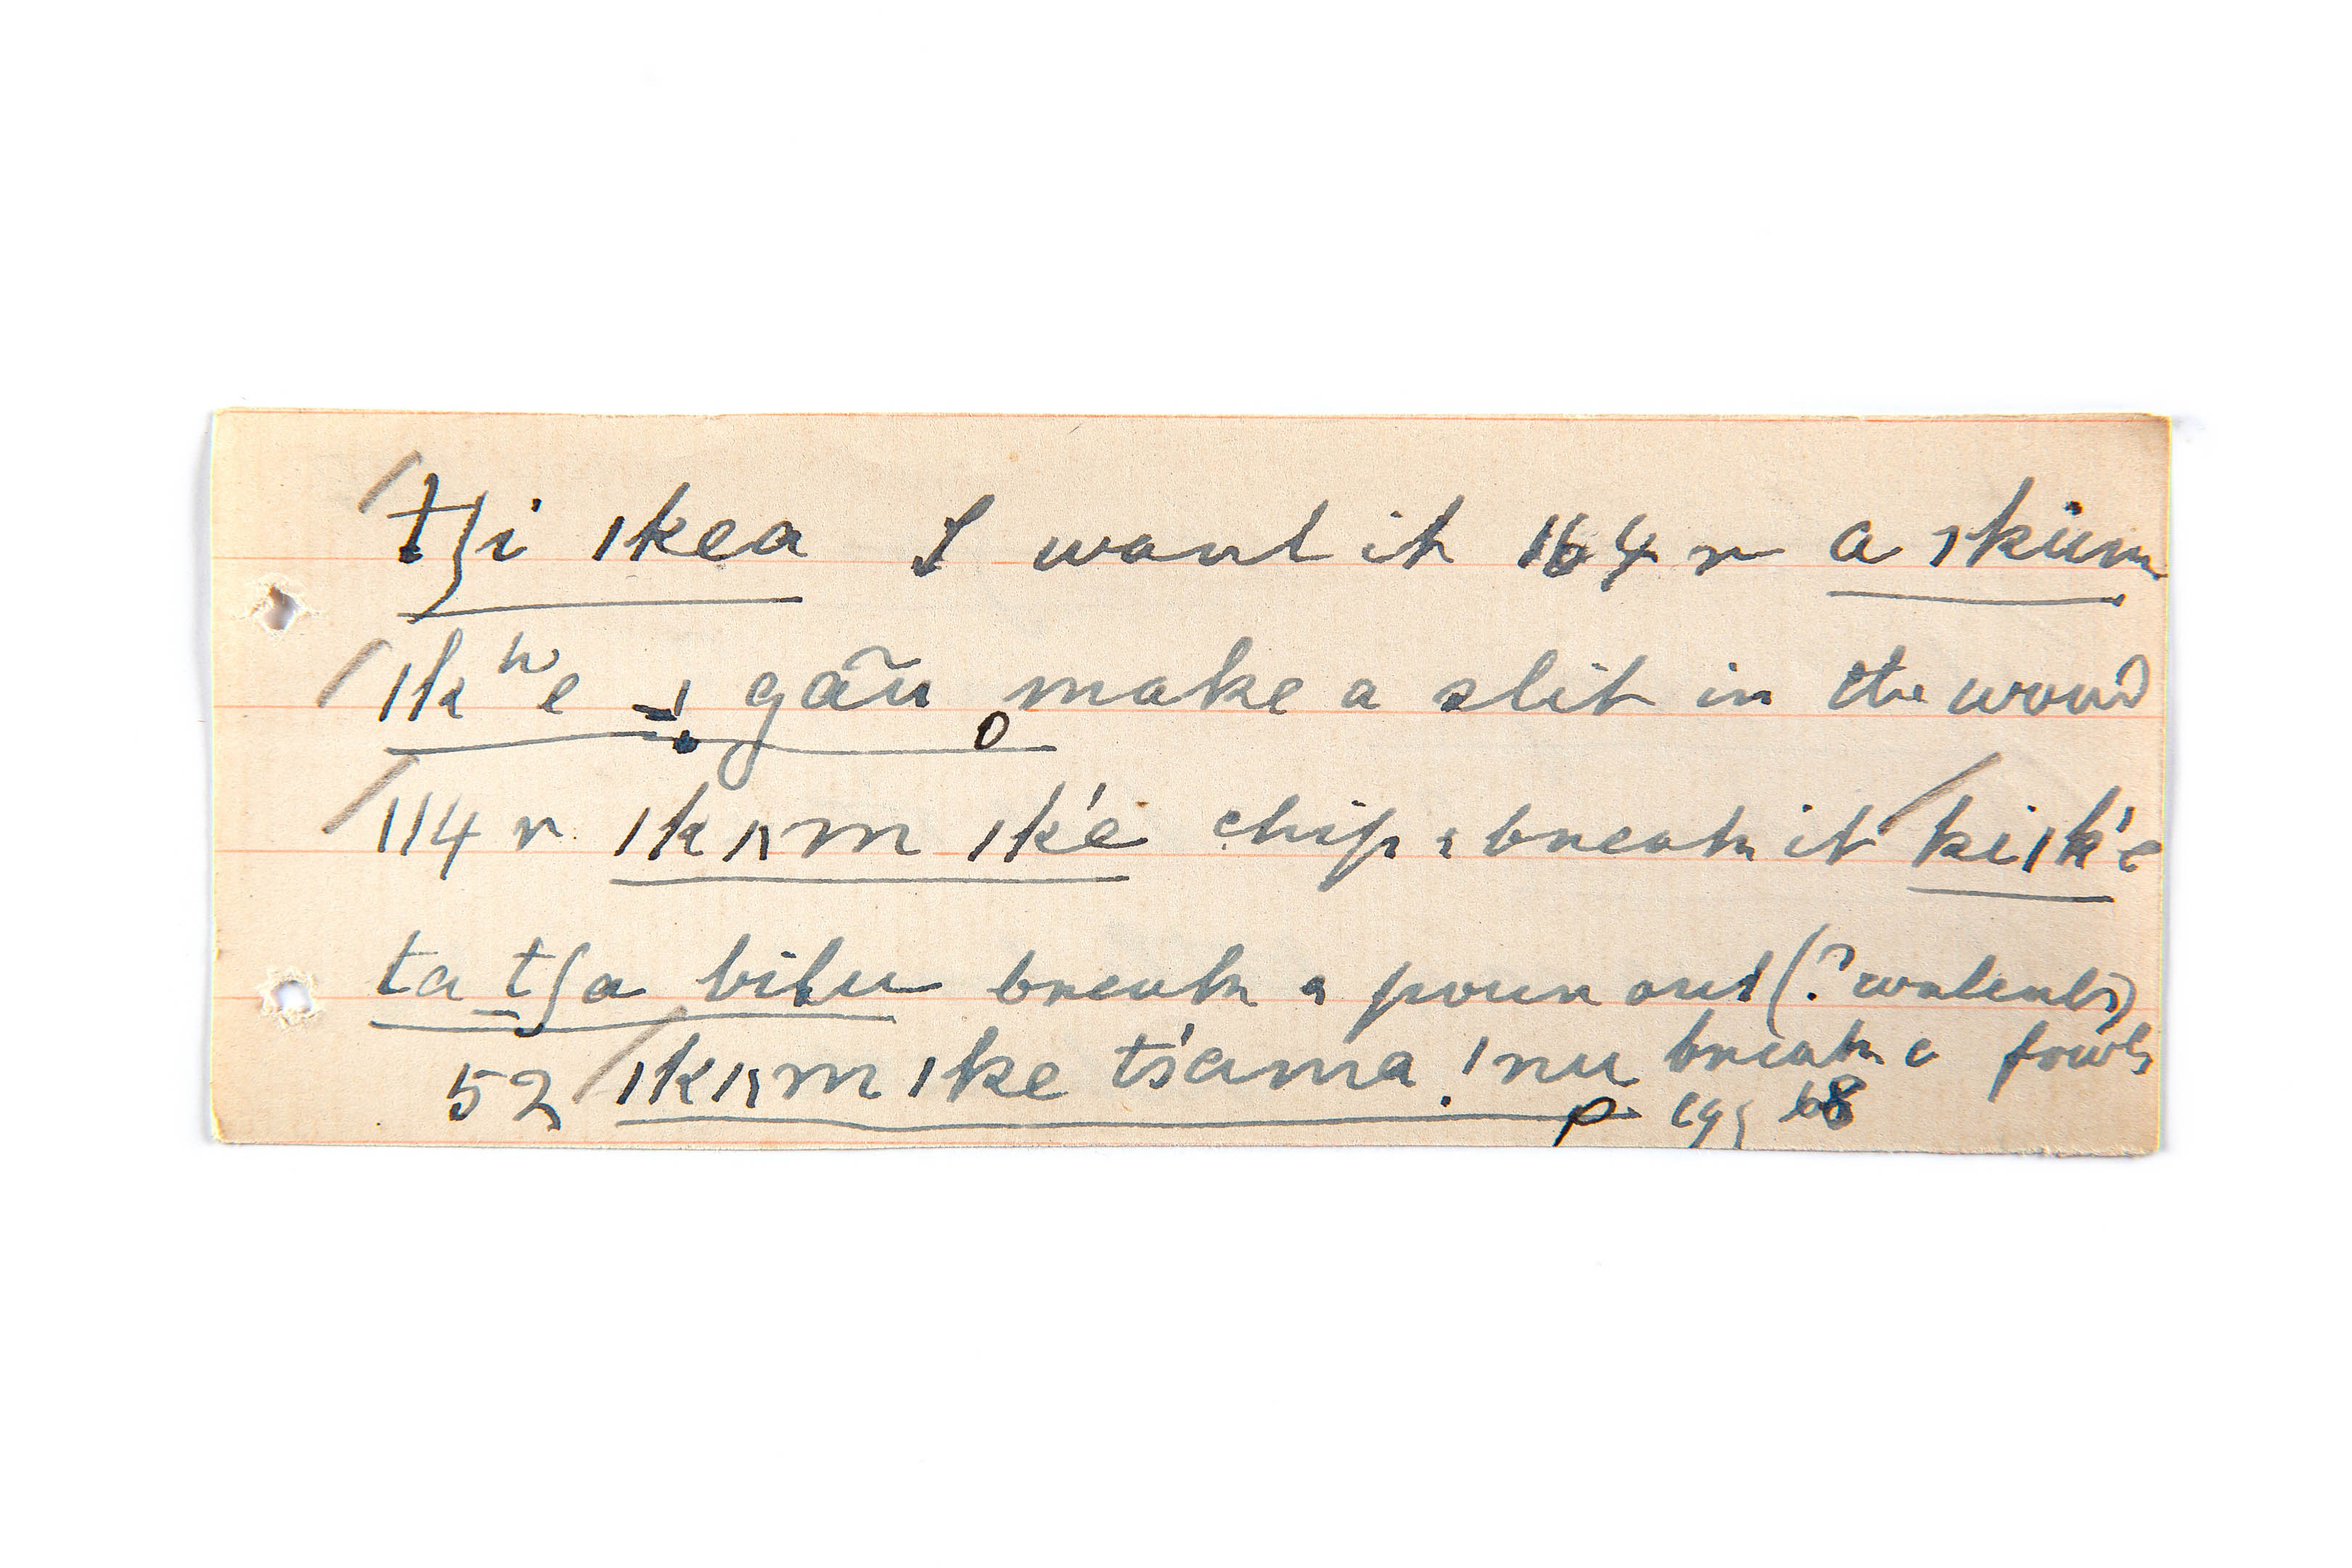 tʃi ıkea I want it 164 r a ıkum
ıkʰe gãũ make a slit in the wood
114 r ıkʌm ık'e chip & break it keık'e
ta tʃa bilu break & pour out (?
52 ıkʌm ıke ts'ama ! nu break a fowls
egg 68